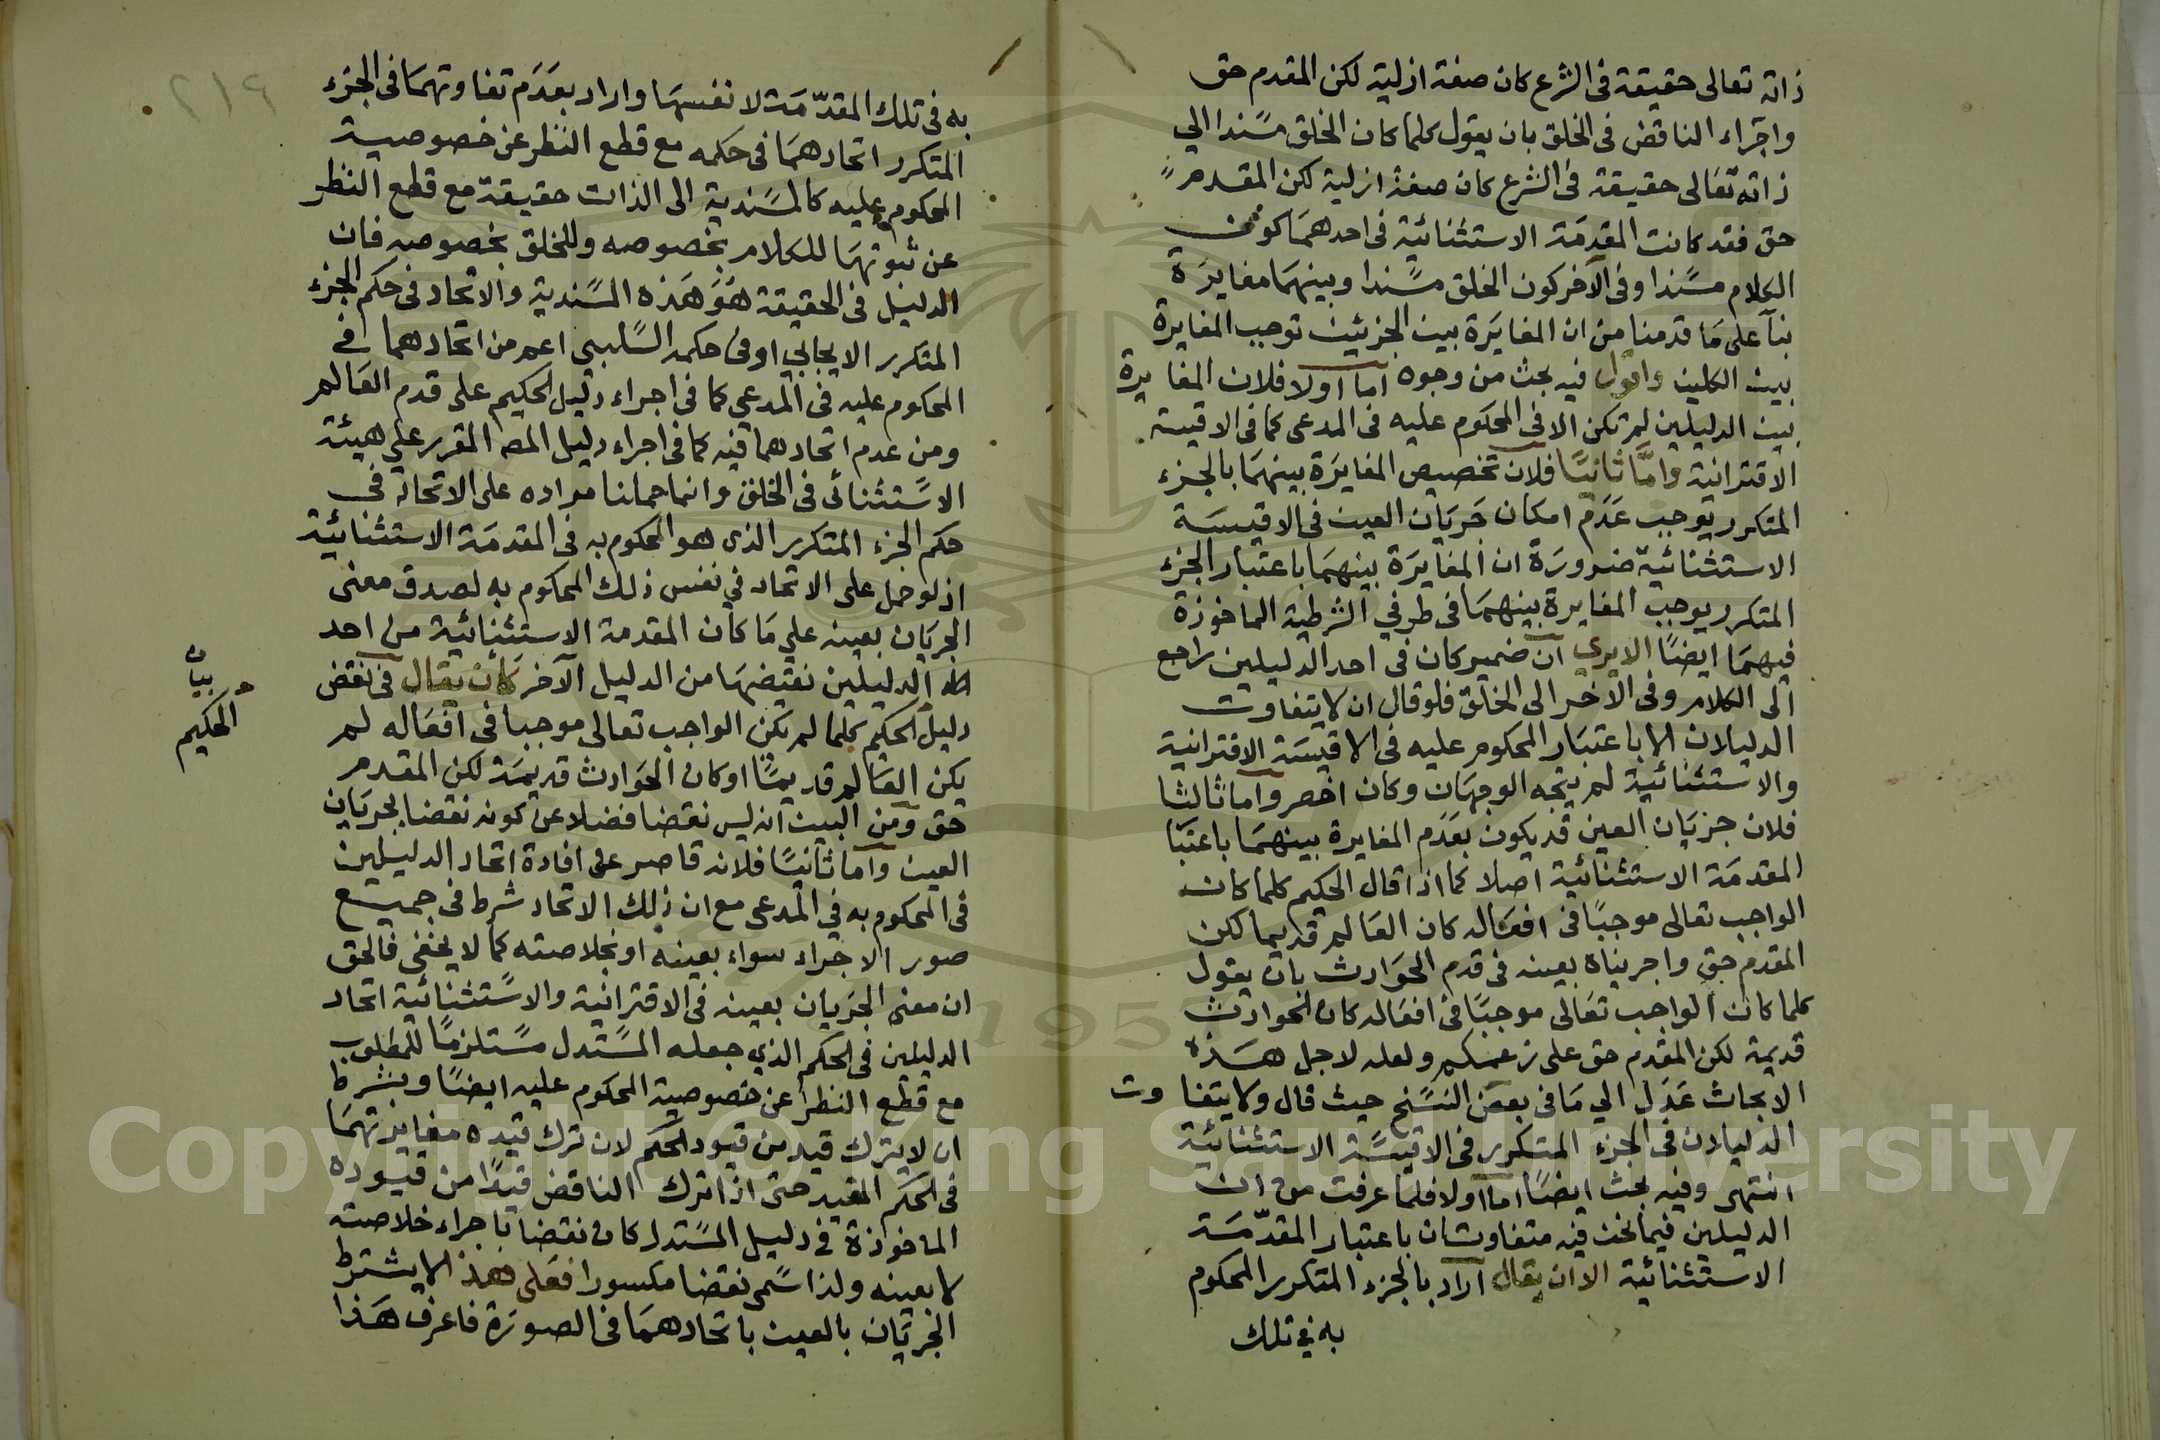 ذاته تعالى حقيقة فى الشرع كان صفة ازلية لكن المقدم حق
واجراء الناقض فى الخلق بان يقول كلما كان الخلق مسندا الي
ذاته تعالى حقيقة فى الشرع كان صفة ازلية لكن المقدم
حق فقد كانت المقدمة الاستثنائية فى احدهما كون
الكلام مسندا وفى الآخر كون الخلق مسندا وبينهما مغايرة
بنآ على ما قدمنا من ان المغايرة بين الجزئين توجب المغايرة
بين الكلين واقول فيه بحث من وجوه اما اولا فلان المغايرة
بين الدليلين لم تكن الا فى المحكوم عليه فى المدعى كما فى الاقيسة
الاقترانية واما ثانيا فلان تخصيص المغايرة بينهما بالجزء
المتكرر يوجب عدم امكان جريان العين فى الاقيسة
الاستثنائية ضرورة ان المغايرة بينهما باعتبار الجزء
المتكرر يوجب المغايرة بينهما فى طرفي الشرطية الماخوذة
فيهما ايضا الا يرى ان ضمير كان فى احد الدليلين راجع
الى الكلام وفى الآخر الى الخلق فلو قال ان لا يتفاوت
الدليلان الا باعتبار المحكوم عليه فى الاقيسة الاقترانية
والاستثنائية لم يتجه الوجهان وكان اخصر واما ثالثا
فلان جريان العين قد يكون بعدم المغايرة بينهما باعتبا
المقدمة الاستثنائية اصلا كما اذا قال الحكيم كلما كان
الواجب تعالى موجبا فى افعاله كان العالم قديما لكن
المقدم حق واجريناه بعينه فى قدم الحوادث بان يقول
كلما كان الواجب تعالى موجبا فى افعاله كان الحوادث
قديمة لكن المقدم حق على زعمكم ولعله لاجل هذه
الابحاث عدل الي ما فى بعض النسخ حيث قال ولا يتفاوت
الدليلان فى الجزء المتكرر فى الاقيسة الاستثنائية
انتهى وفيه بحث ايضا اما اولا فلما عرفت من ان
الدليلين فيما نحن فيه متفاوتان باعتبار المقدمة
الاستثنائية الا ان يقال اراد بالجزء المتكرر المحكوم
به في تلك
به فى تلك المقدمة لا نفسها واراد بعدم تفاوتهما فى الجزء
المتكرر اتحادهما فى حكمه مع قطع النظر عن خصوصية
المحكوم عليه كالمسندية الى الذات حقيقة مع قطع النظر
عن ثبوتها للكلام بخصوصه وللخلق بخصوصه فان
الدليل فى الحقيقة هو هذه المسندية والاتحاد فى حكم الجزء
المتكرر الايجابي او فى حكمه السلبي اعم من اتحادهما في
المحكوم عليه فى المدعي كما فى اجراء دليل الحكيم على قدم العالم
ومن عدم اتحادهما فيه كما فى اجراء دليل المصـ المقرر علي هيئة
الاستثنائى فى الخلق وانما حملنا مراده على الاتحاد فى
حكم الجزء المتكرر الذى هو المحكوم به فى المقدمة الاستثنائية
اذ لو حمل على الاتحاد في نفس ذلك المحكوم به لصدق معنى
الجريان بعينه علي ما كان المقدمة الاستثنائية من احد
الدليلين نقيضها من الدليل الآخر كان يقال فى نقض
دليل الحكيم كلما لم يكن الواجب تعالى موجبا فى افعاله لم
يكن العالم قديما او كان الحوادث قديمة لكن المقدم
حق ومن البين انه ليس نقضا فضلا عن كونه نقضا بجريان
العين واما ثانيا فلانه قاصر على افادة اتحاد الدليلين
فى المحكوم به في المدعى مع ان ذلك الاتحاد شرط فى جميع
صور الاجراء سواء بعينه او بخلاصته كما لا يخفى فالحق
ان معنى الجريان بعينه فى الاقترانية والاستثنائية اتحاد
الدليلين فى الحكم الذي جعله المستدل مستلزما للمطلوب
مع قطع النظر عن خصوصية المحكوم عليه ايضا وبشرط
ان لا يترك قيد من قيود الحكم لان ترك قيده مغايرتهما
فى الحكم المقيد حتى اذا ترك الناقض قيدا من قيوده
الماخوذة فى دليل المستدل كان نقضا باجراء خلاصته
لا بعينه ولذا سمى نقضا مكسورا فعلى هذا لا يشترط
الجريان بالعين باتحادهما فى الصورة فاعرف هذا
بيان
الحكيم
٢١٩
Copyright © King Saud University
1957